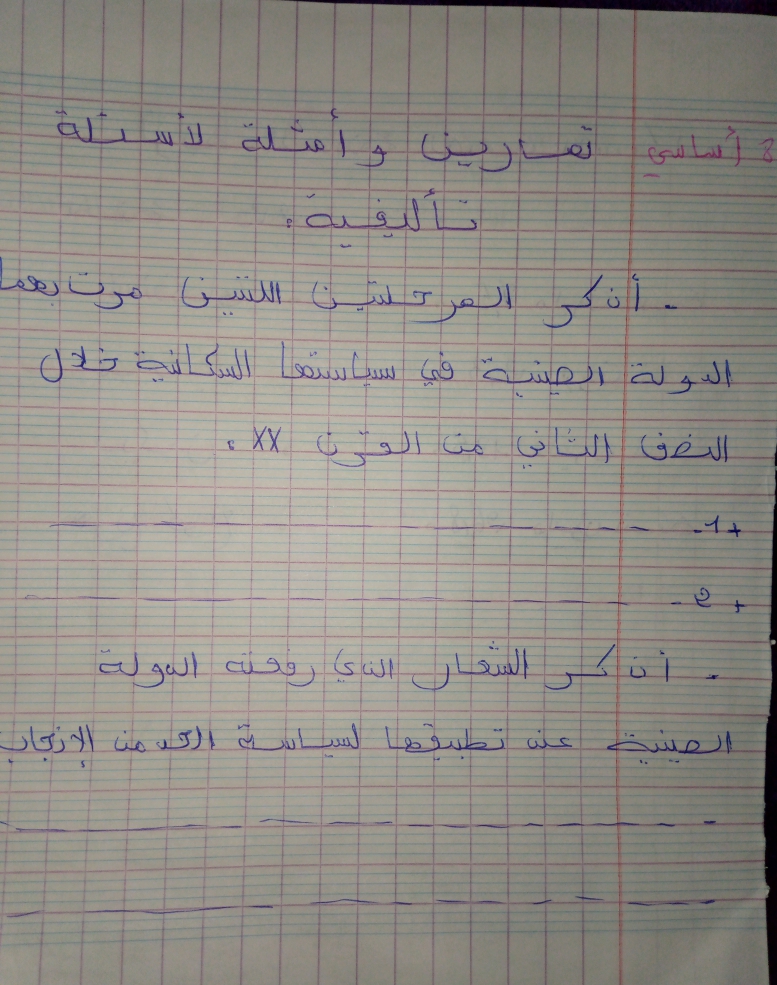 8 أساسي تمارين و أمثلة لأسئلة
تأليفية.
- أذكر المرحلتين اللتين مرت بهما
الدولة الصينية في سياستها السكانية خلال
النصف الثاني من القرن XX.
+ 1-
+ 2-
- أذكر الشعار الذي رفعته الدولة
الصينية عند تطبيقها لسياسة الحد من الإنجاب
-